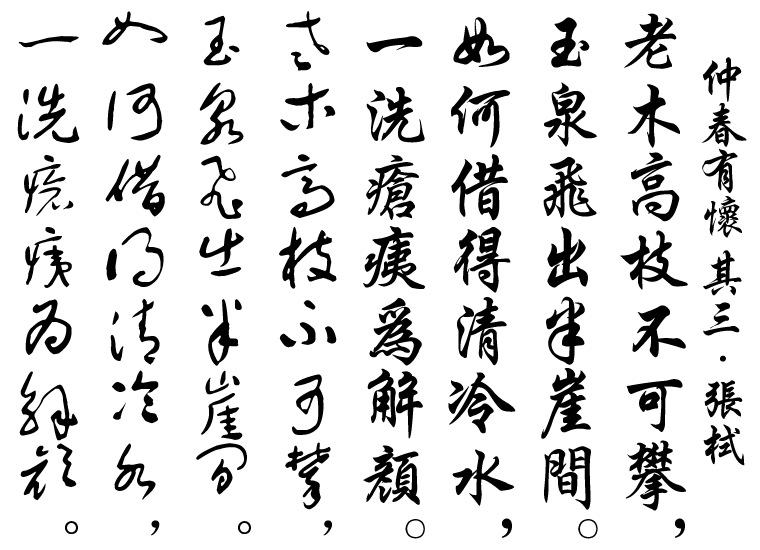 仲春有懷其三·張栻
老木高枝不可攀，
玉泉飛出半崖間。
如何借得清冷水，
一洗瘡痍為解顏。
老木高枝不可攀，
玉泉飛出半崖間。
如何借得清冷水，
一洗瘡痍為解顏。